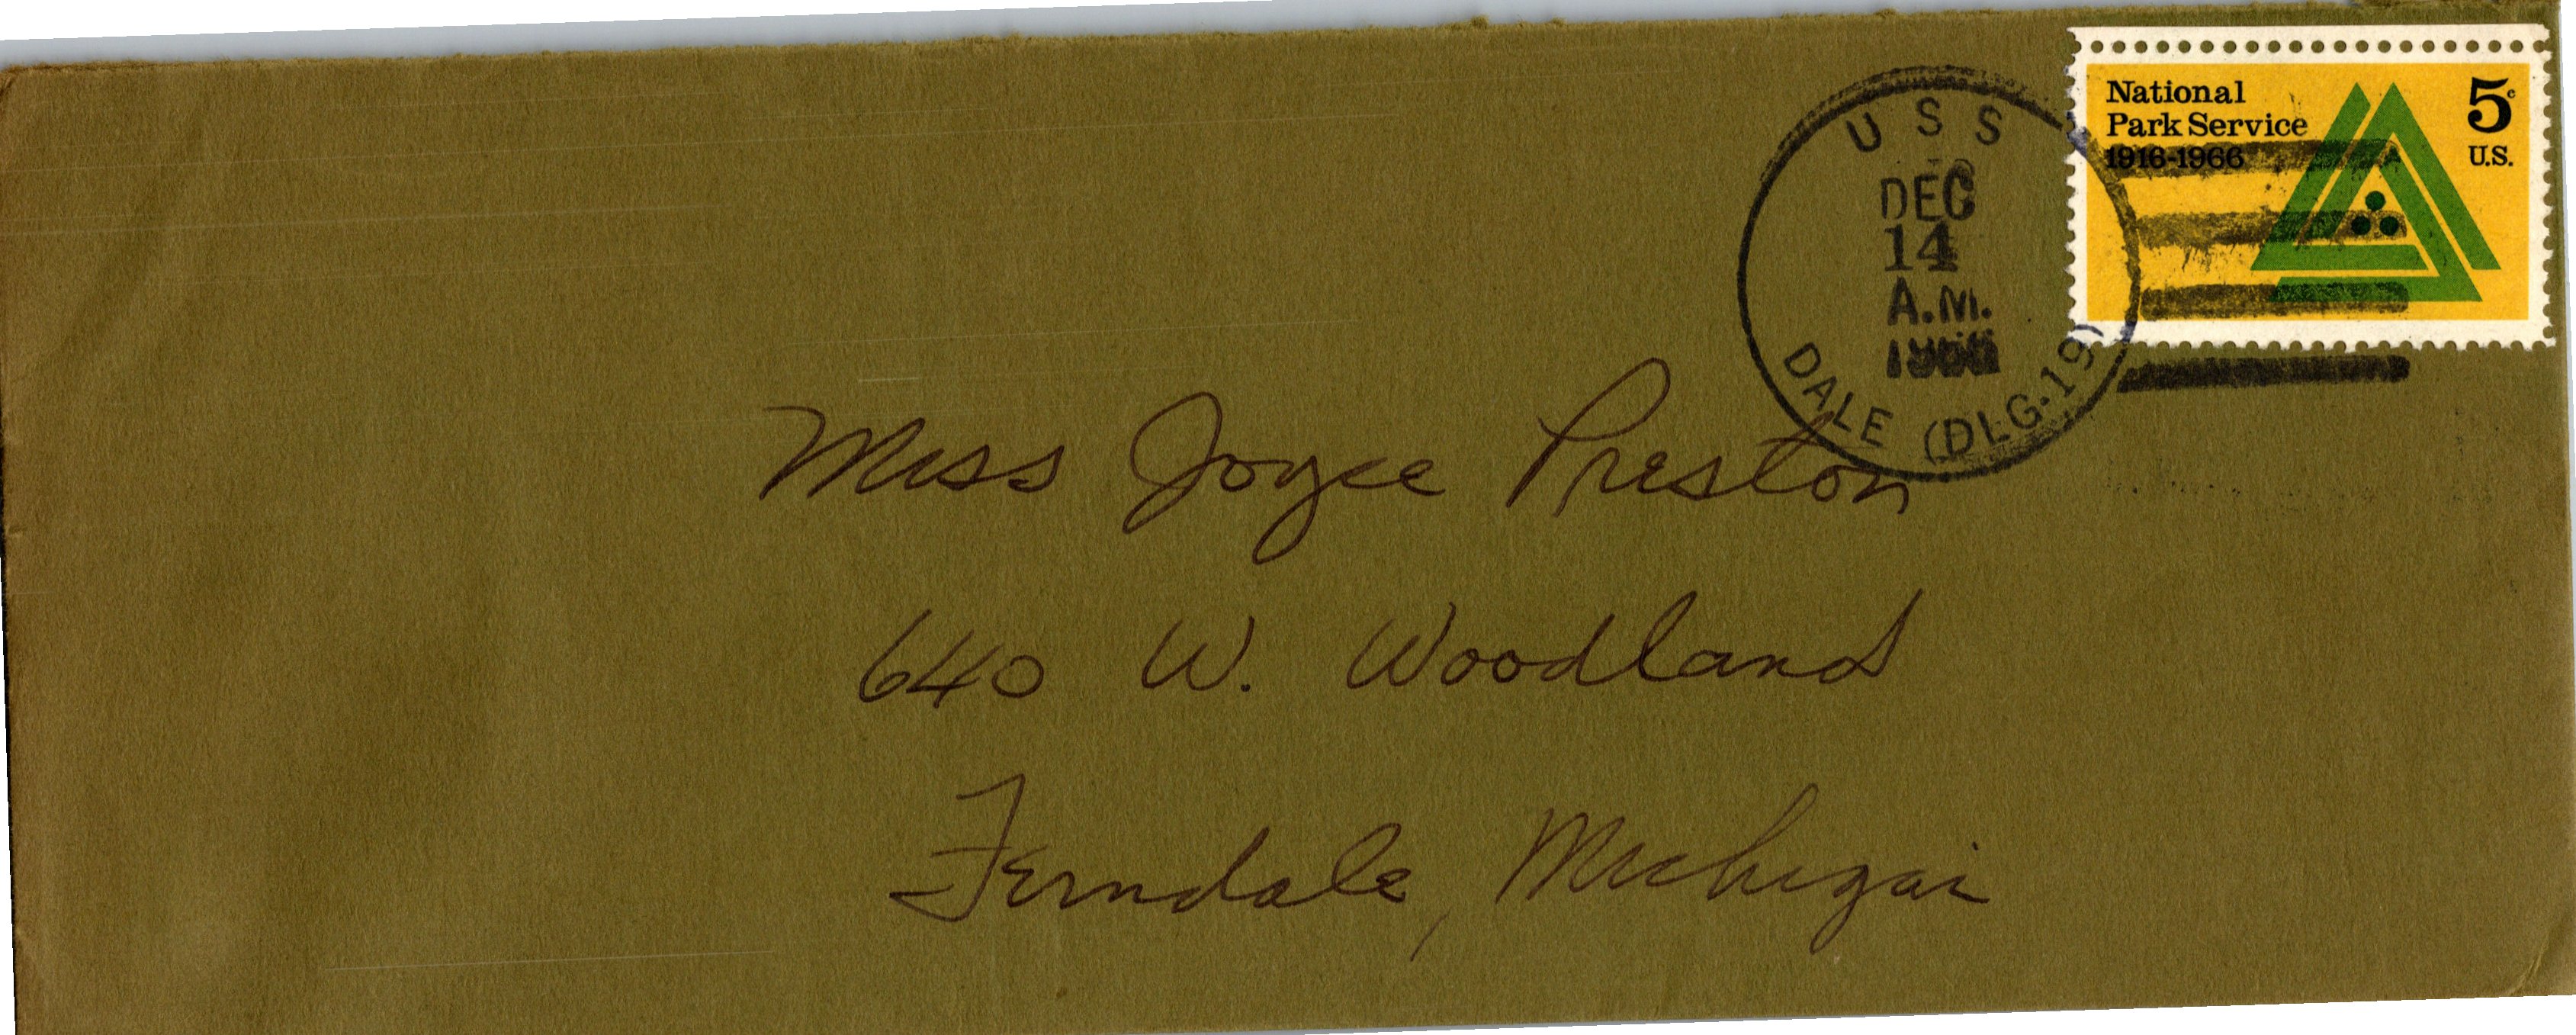 National
Park Service
1916-1966
5c
U.S.
USS
DEC
14
A.M.
DALE (DLG-19)
Miss Joyce Preston
640 W. Woodland
Ferndale, Michigan